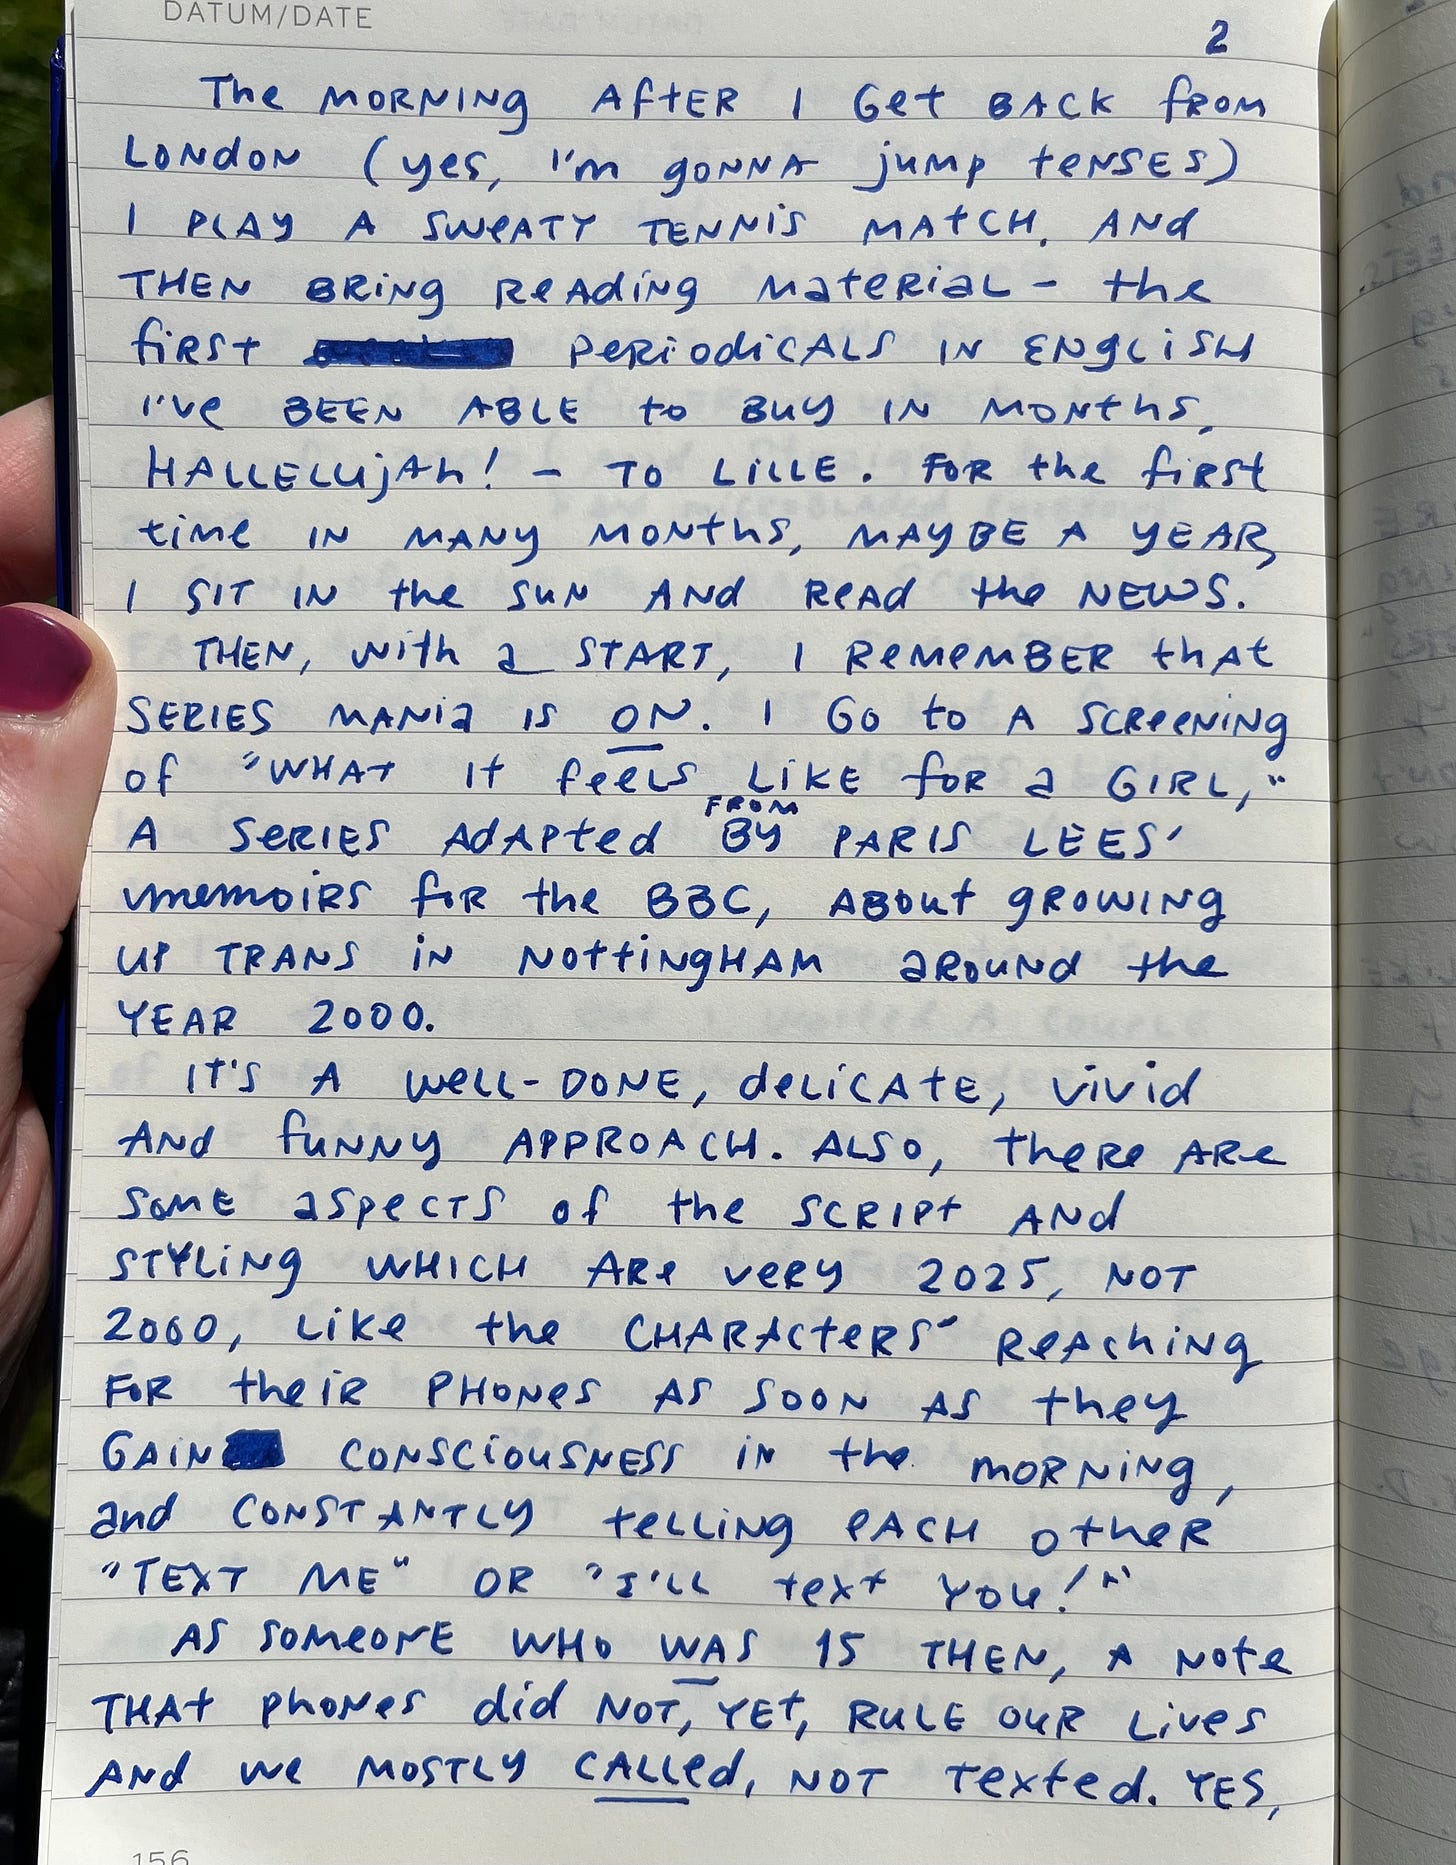 DATUM/DATE
2
The MORNING AftER I Get BACK fROM
LONDON (yes, I'm gONNA jump tENSES)
I PLAY A SWEATY TENNIS MATCH, AND
THEN BRING READING MATERIAL - the
fiRSt PERIODICALS IN ENGLISH
I'VE BEEN ABLE to BUY IN MONthS,
HALLELUJAH! - TO LILLE. FOR the fiRSt
time IN MANY MONthS, MAYBE A YEAR,
I SIT IN the SUN AND READ the NEWS.
THEN, With a START, I REMEMBER that
SERIES MANIA IS ON. I GO to A SCREENING
of "WHAT It feels LIKE foR a GIRL,"
FROM
A SERIES ADAPTED BY PARIS LEES'
memoirs foR the BBC, ABOUT gROWING
UP TRANS iN NOttiNGHAM aROUND the
YEAR 2000.
It'S A WELL-DONE, dELiCATE, vivid
AND fuNNY APPROACH. ALSO, theRE ARE
SOME aspECTS of the SCRIPt AND
STYLING WHICH ARE veRY 2025, NOT
2000, LIKE the CHARACTERS' REACHING
FOR theIR PHONES AS SOON AS they
GAIN CONSCIOUSNESS IN the MORNING,
and CONSTANTLY tELLING EACH otheR
"TEXT ME" OR "I'LL text YOU!"
AS SOMEONE WHO WAS 15 THEN, A NOte
THAt phoNES did NOT, YET, RULE OUR Lives
AND we MOSTLY CALLed, NOT Texted. YES,
156